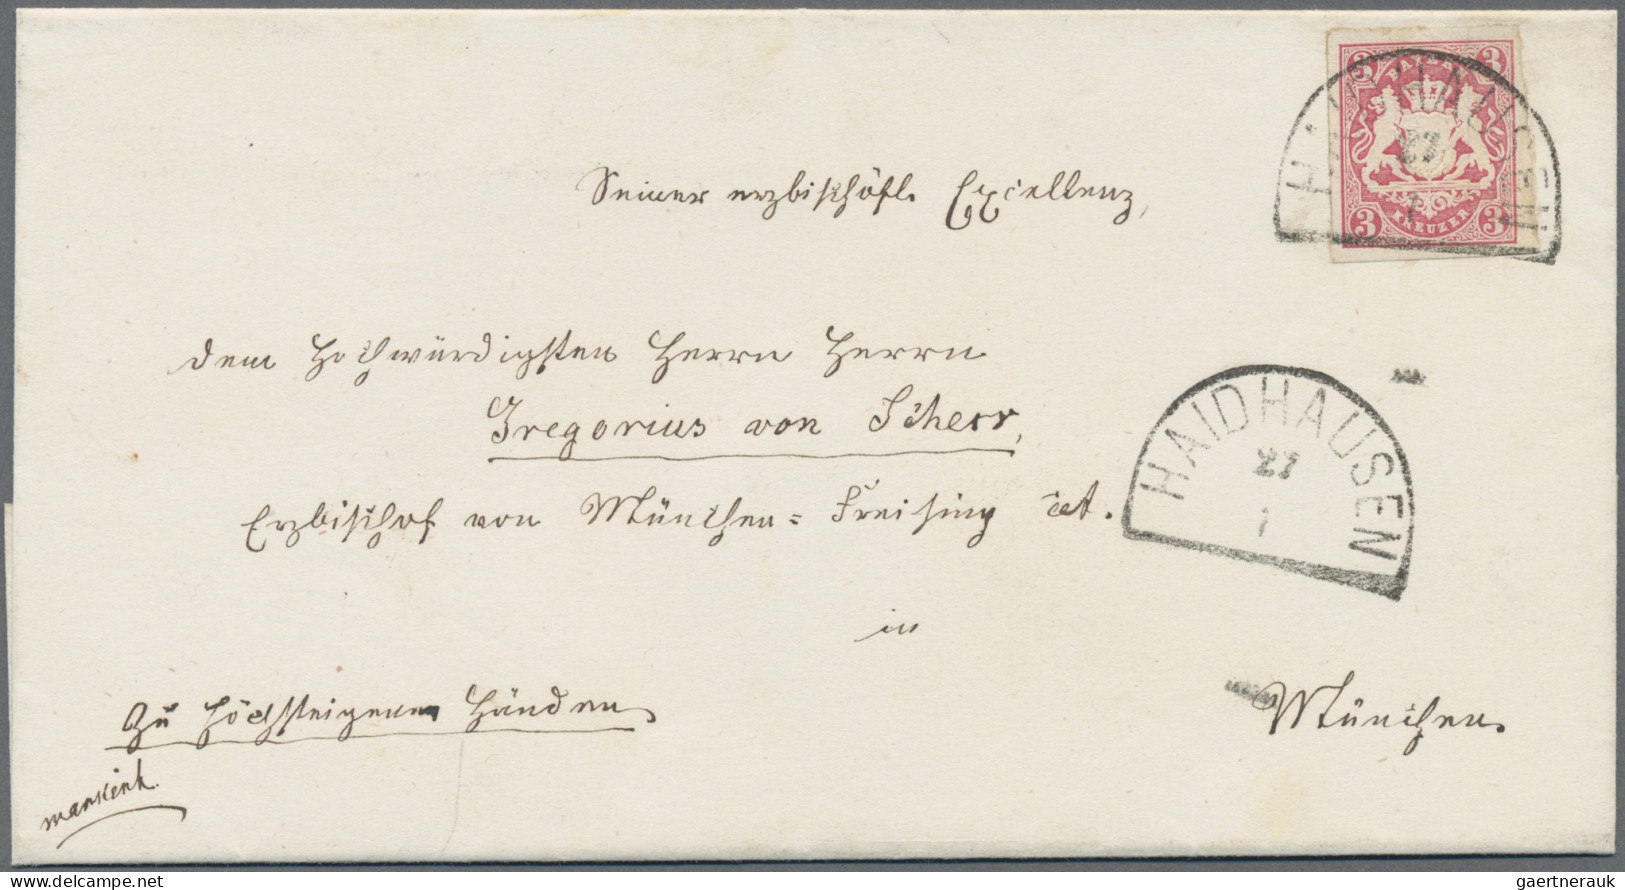 3 BAYERN 3
HAIDHAUSEN
27
1
3 KREUZER 3
Seiner erzbischöfl. Excellenz,
dem Hochwürdigsten Herrn Herrn
Gregorius von Scherr,
HAIDHAUSEN
27
1
Erzbischof von München = Freising etc.
in
Zu höchsteigenen Händen
München.
gaertnerauk